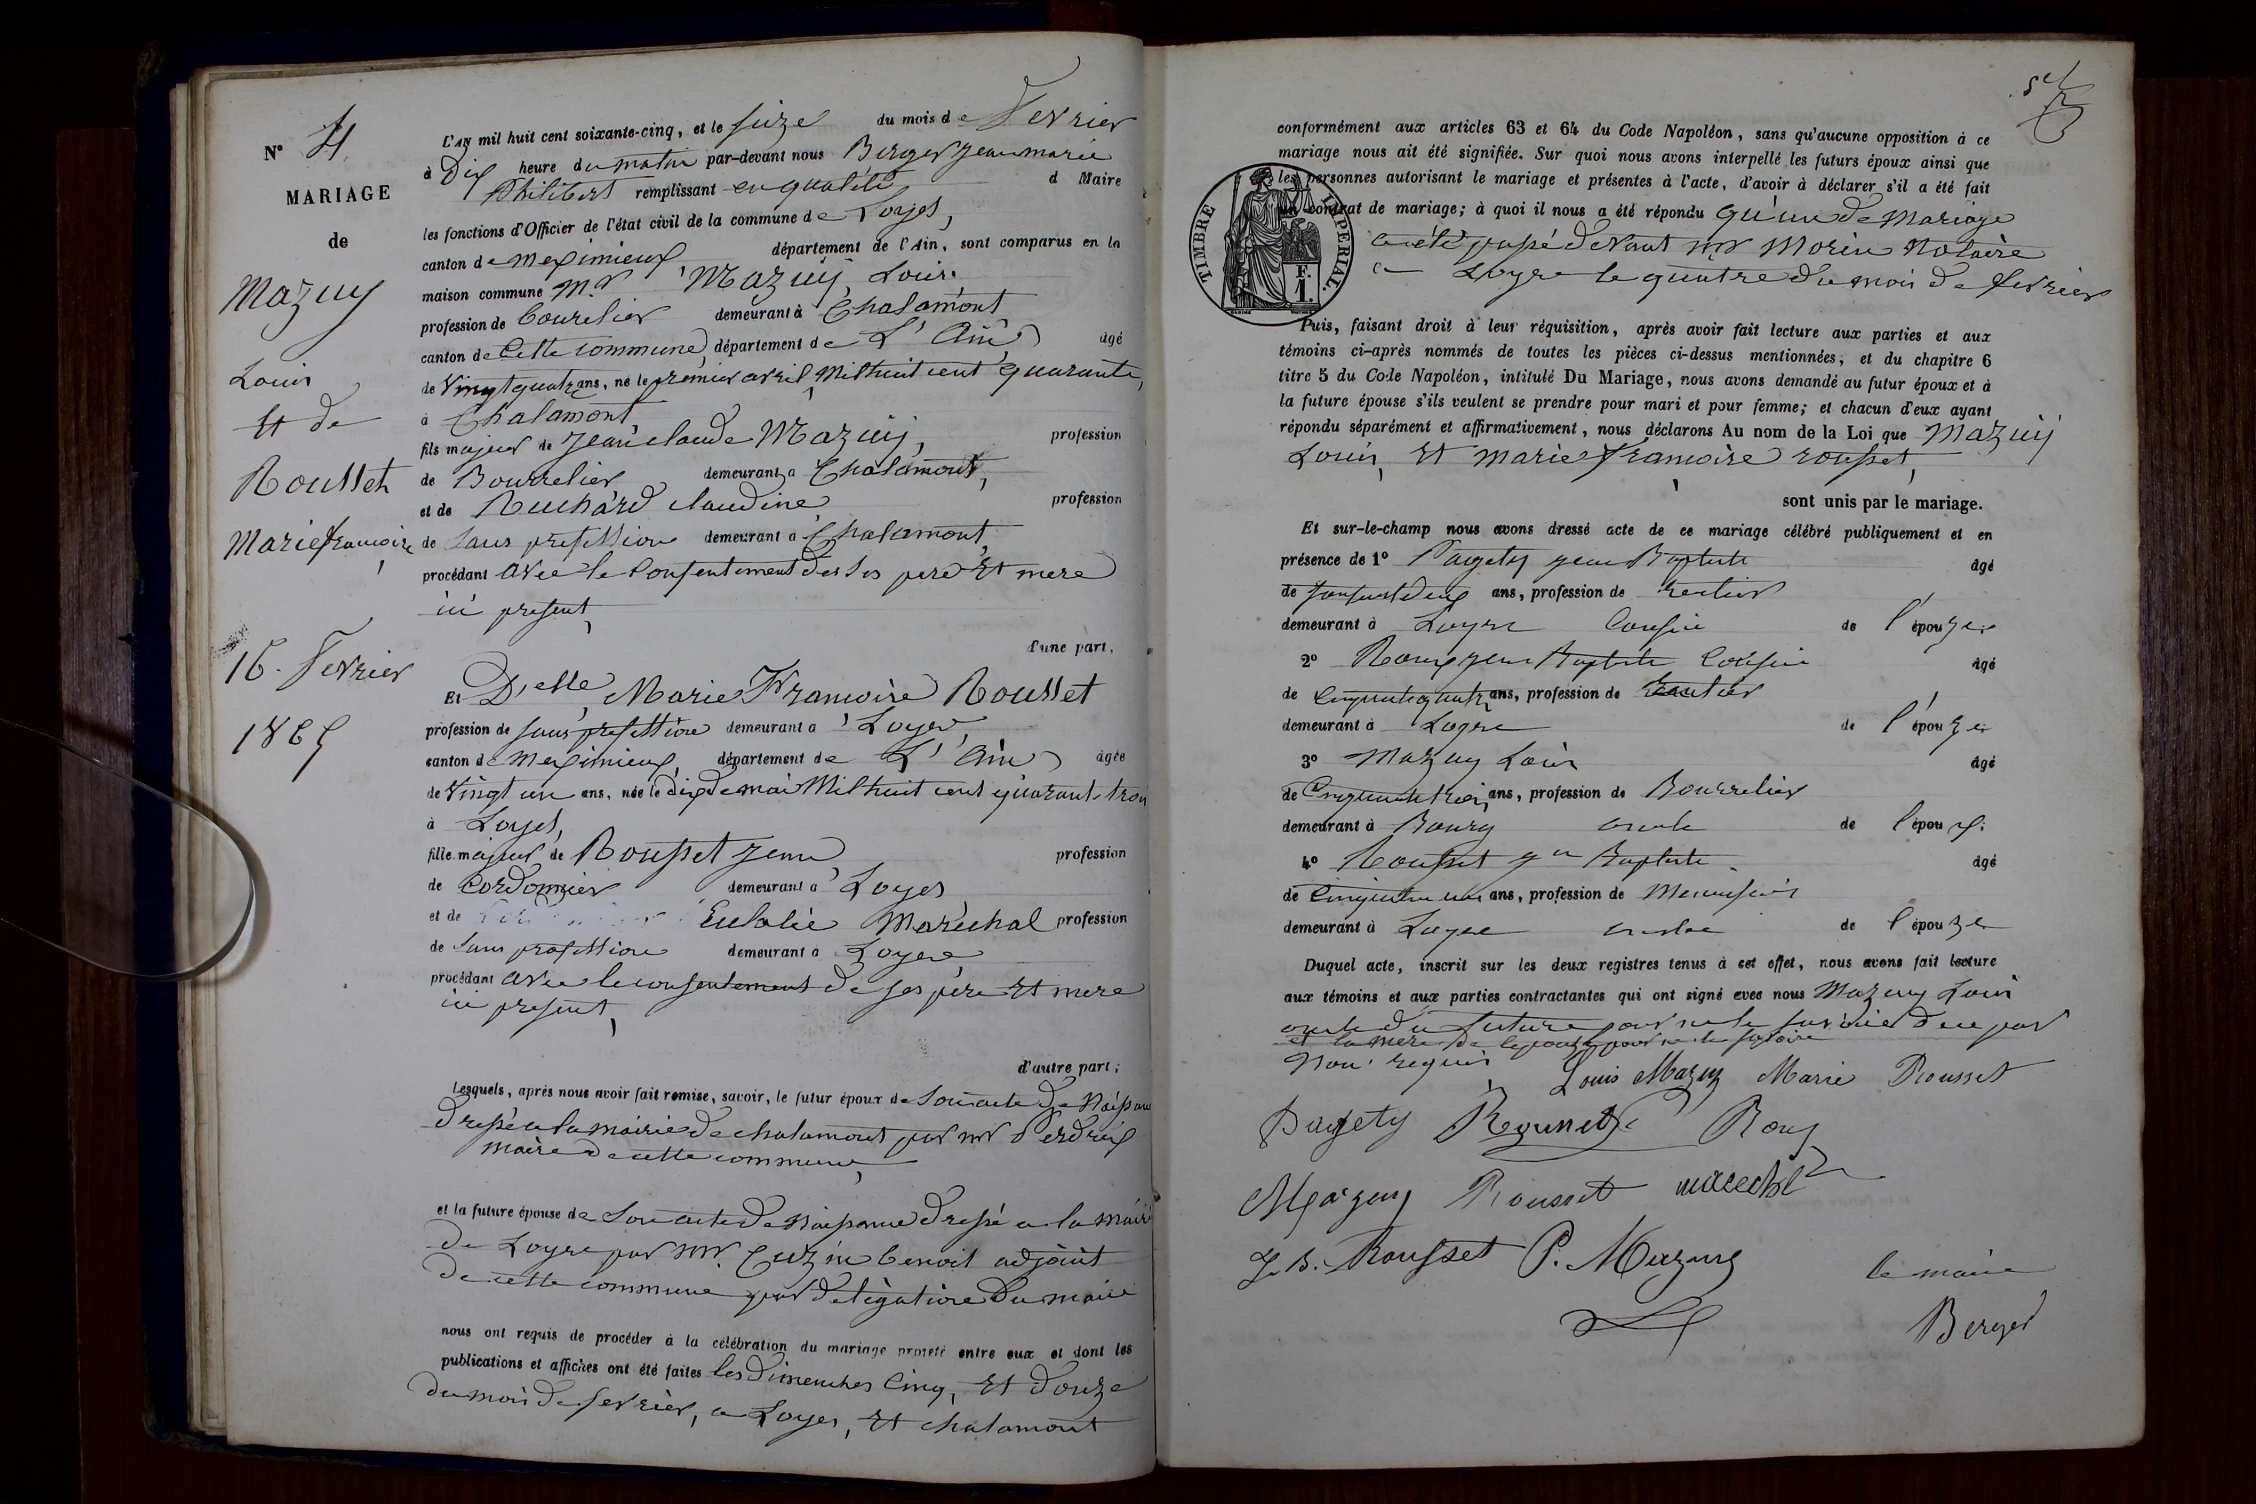 N° 4
MARIAGE
de
Mazuy
Louis
Et de
Rousset
Marie françoise
16. Fevrier
1865
L'AN mil huit cent soixante-cinq, et le seize du mois de Fevrier
à Dix heure du matin par-devant nous Berger jean marie
Philibert remplissant en qualité d Maire
les fonctions d'Officier de l'état civil de la commune de Loyes,
canton de Meximieux département de l'Ain, sont comparus en la
maison commune Mr Mazuy Louis
profession de Bourelier demeurant à Chalamont
canton de Cette commune, département de L'Ain âgé
de Vingt quatre ans, né le premier avril, Mil huit cent quarante,
à Chalamont
fils majeur de Jean claude Mazuy, profession
de Bourrelier demeurant à Chalamont,
et de Ruchard claudine profession
de Sans profession demeurant à Chalamont,
procédant avec le Consentement des ses pere Et mere
ici present,
d'une part,
Et Delle Marie Françoise Rousset
profession de sans profession demeurant à Loyes,
canton de Meximieux, département de L'Ain âgée
de Vingt un ans, née le dix de mai Mil huit cent quarante trois
à Loyes,
fille majeur de Rousset jean profession
de Cordonnier demeurant à Loyes
et de Eulalie Maréchal profession
de Sans profession demeurant à Loyes
procédant avec le consentement de ses père Et mere
ici present,
d'autre part;
Lesquels, après nous avoir fait remise, savoir, le futur époux de Son acte de Naissance
dressé a la mairie de chalamont par mr Perdrix
maire de cette commune,
et la future épouse de Son acte de Naissance dressé a la mairie
de Loyes par mr. Cuzin benoit adjoint
de cette commune par délégation du maire
nous ont requis de procéder à la célébration du mariage projeté entre eux et dont les
publications et affiches ont été faites les Dimenches Cinq, Et douze
du mois de fevrier, a Loyes, Et chalamont
conformément aux articles 63 et 64 du Code Napoléon, sans qu'aucune opposition à ce
mariage nous ait été signifiée. Sur quoi nous avons interpellé les futurs époux ainsi que
les personnes autorisant le mariage et présentes à l'acte, d'avoir à déclarer s'il a été fait
un contrat de mariage; à quoi il nous a été répondu qu'un de Mariage
a été passé devant mr Morin Notaire
a Loyes le quatre du mois de fevrier
TIMBRE IMPERIAL.
F.
1.
Puis, faisant droit à leur réquisition, après avoir fait lecture aux parties et aux
témoins ci-après nommés de toutes les pièces ci-dessus mentionnées, et du chapitre 6
titre 5 du Code Napoléon, intitulé Du Mariage, nous avons demandé au futur époux et à
la future épouse s'ils veulent se prendre pour mari et pour femme; et chacun d'eux ayant
répondu séparément et affirmativement, nous déclarons Au nom de la Loi que Mazuy
Louis, Et Marie françoise rousset,
sont unis par le mariage.
Et sur-le-champ nous avons dressé acte de ce mariage célébré publiquement et en
présence de 1° Pagety jean Baptiste âgé
de soixante deux ans, profession de rentier
demeurant à Loyes Cousin de l'épouze
2° Roux jean Baptiste Cousin âgé
de cinquante quatre ans, profession de rentier
demeurant à Loyes de l'épouze
3° Mazuy Louis âgé
de Cinquante trois ans, profession de Bourrelier
demeurant à Bourg oncle de l'époux
4° Rousset jn Baptiste âgé
de Cinquante un ans, profession de Menuisier
demeurant à Loyes oncle de l'épouze
Duquel acte, inscrit sur les deux registres tenus à cet effet, nous avons fait lecture
aux témoins et aux parties contractantes qui ont signé avec nous Mazuy Louis
oncle du future pour ne le savoir de ce par
et la mere de l'epoux pour ne le savoire
Nous requis
Louis Mazuy Marie Rousset
Pagety Roux
Mazuy Rousset marechal
J. B. Rousset P. Mazuy
le maire
Berger